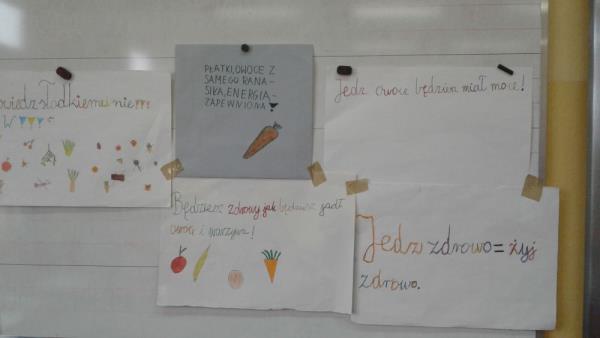 owiedz słodkiemu nie!!!
PŁATKI, OWOCE Z
SAMEGO RANA -
SIŁA, ENERGIA -
ZAPEWNIONA!
Jedz owoce będziesz miał moce!
Będziesz zdrowy jak będziesz jadł
owoce i warzywa!
Jedz zdrowo = żyj
zdrowo.